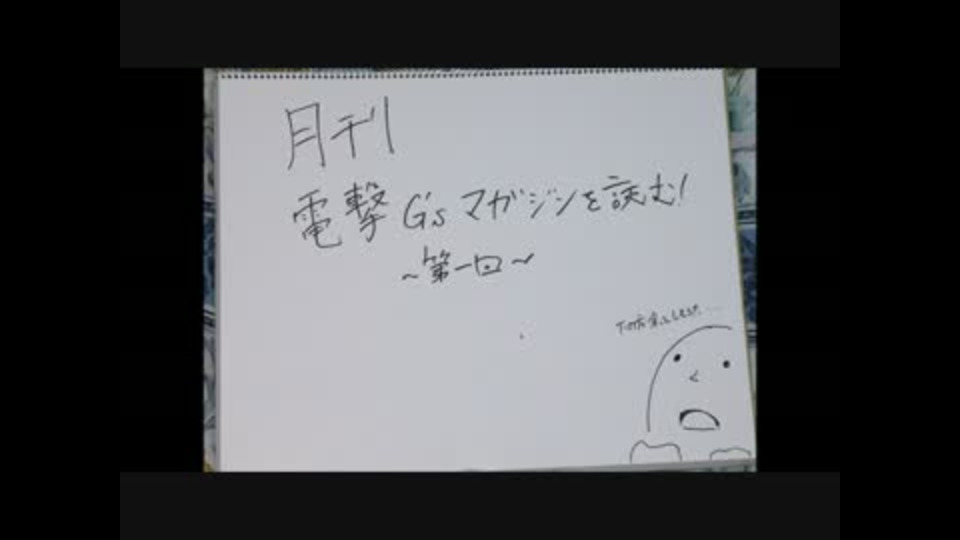 月刊
電撃G'sマガジンを読む!
~第一回~